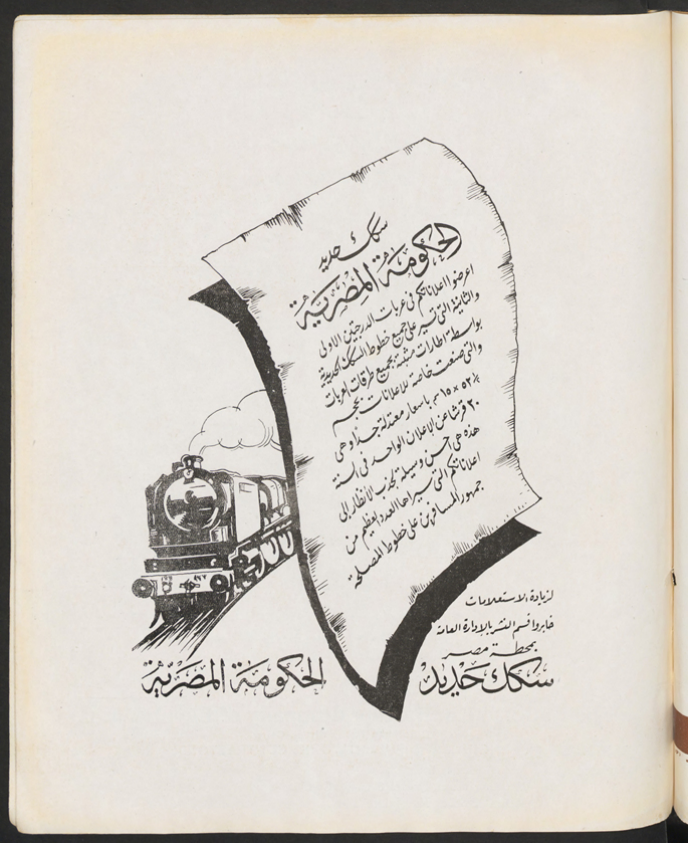 سكك حديد
الحكومة المصرية
اعرضوا اعلاناتكم فى عربات الدرجتين الاولى
والثانية التى تسير على جميع خطوط السكك الحديدية
بواسطة اطارات مثبتة بجميع طرقات العربات
والتى صنعت خاصة للاعلانات بحجم
٥٢½ × ١٥ سم باسعار معتدلة جدا وهى
٢٠ قرشا عن الاعلان الواحد فى السنة
هذه هى احسن وسيلة لجذب الأنظار إلى
اعلاناتكم التى سيراها العدد العظيم من
جمهور المسافرين على خطوط المصلحة
لزيادة الاستعلامات
خابروا قسم النشر بالإدارة العامة
بمحطة مصر
سكك حديد الحكومة المصرية